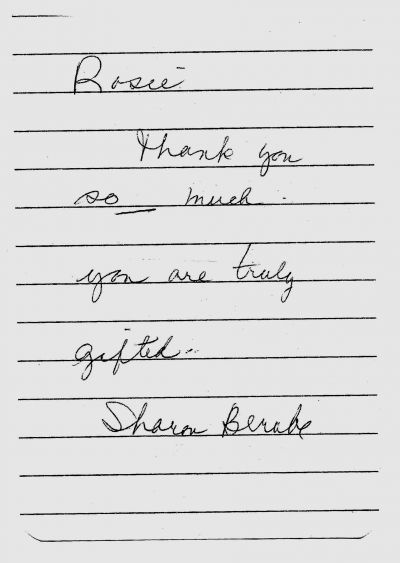 Rosie
Thank you
so much.
you are truly
gifted..
Sharon